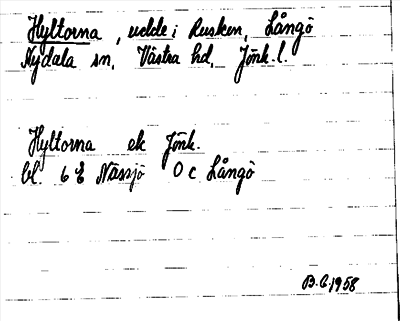 Hyltorna, udde i Rusken, Långö
Nydala sn, Västra hd, Jönk. l.
Hyltorna ek Jönk.
bl. 6 E Nässjö 0 c Långö
B.E. 1958